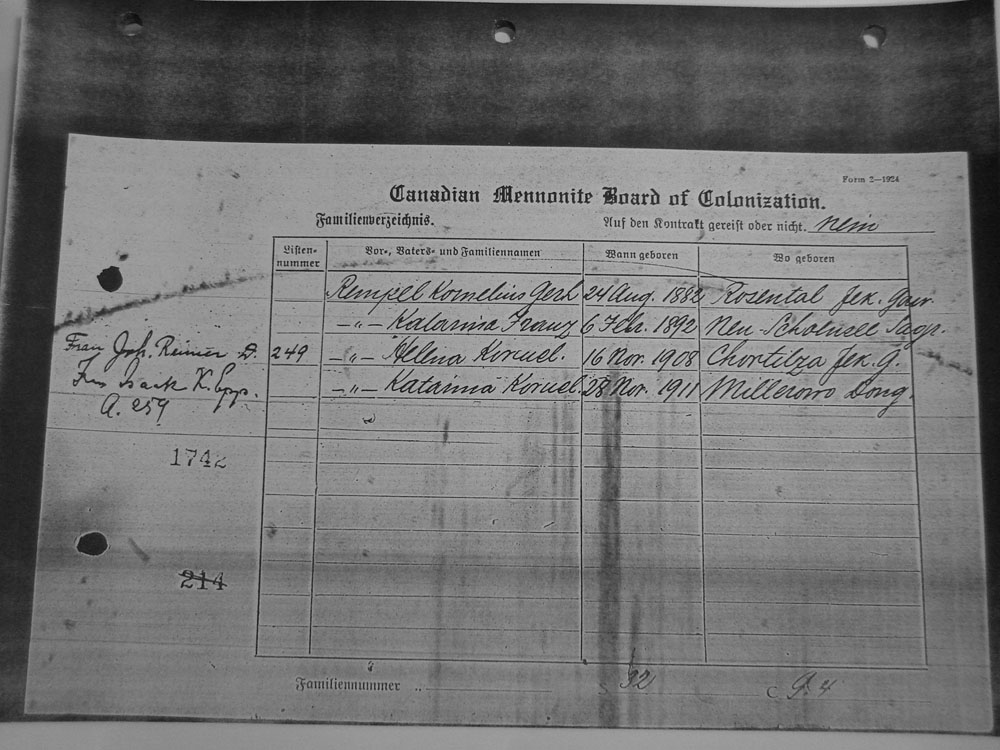 Form 2—1924
Canadian Mennonite Board of Colonization.
Familienverzeichnis. Auf den Kontrakt gereist oder nicht. nein
Listen-nummer Vor-, Vaters- und Familiennamen Wann geboren Wo geboren
Rempel Kornelius Gerh 24 Aug. 1882 Rosental Jek. Gouv.
–"– Katarina Franz 6 Febr. 1892 Neu-Schönsee Sagr.
Frau Joh. Reimer D. 249 –"– Helena Kornel. 16 Nov. 1908 Chortitza Jek. G.
Frau Isaak K. Epp. –"– Katarina Kornel. 28 Nov. 1911 Millerowo Dong.
A. 259
1742
214
Familiennummer .. S 32 C 9.4